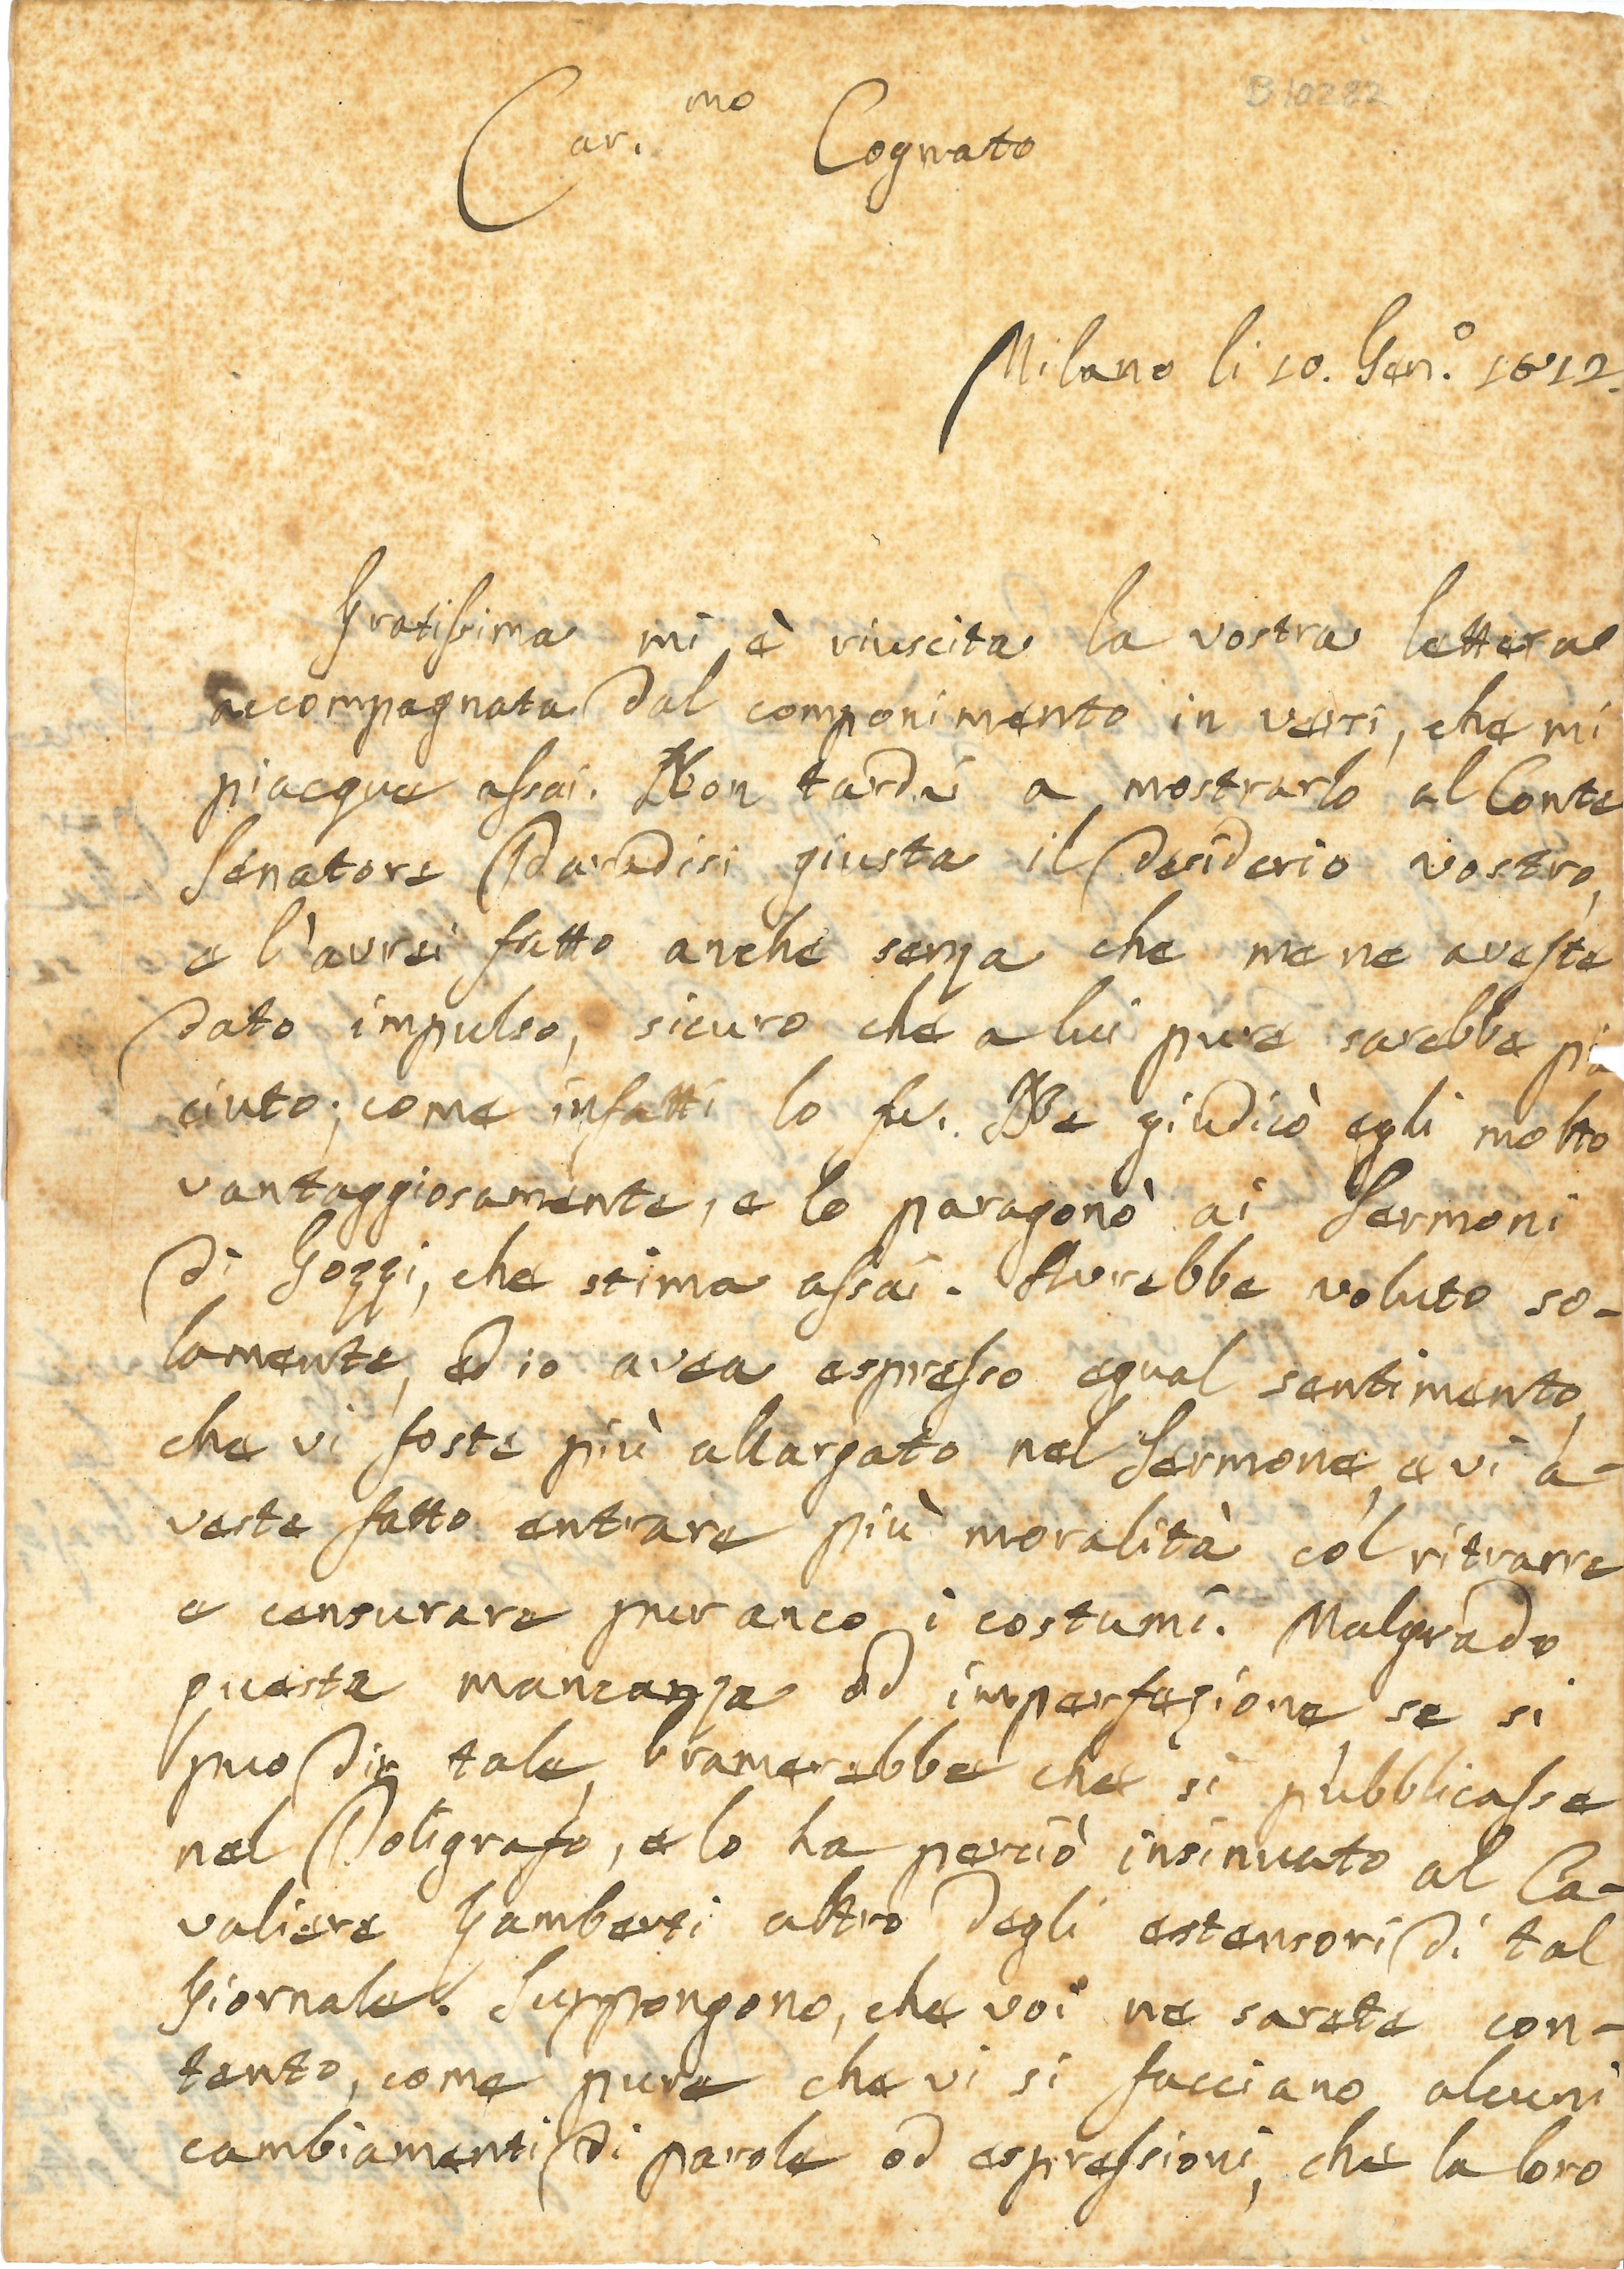 B10282
Car.mo Cognato
Milano li 10. Gen.o 1812.
Gratissima mi è riuscita la vostra lettera
accompagnata dal componimento in versi, che mi
piacque assai. Non tardai a mostrarlo al Conte
Senatore Paradisi giusta il desiderio vostro,
e l'avrei fatto anche senza che me ne aveste
dato impulso, sicuro che a lui pure sarebbe pia
ciuto; come infatti lo fu. Ne giudicò egli molto
vantaggiosamente, e lo paragonò ai Sermoni
di Gozzi, che stima assai. Avrebbe voluto so-
lamente, ed io avea espresso egual sentimento,
che vi foste più allargato nel Sermone, e vi a-
veste fatto entrare più moralità col ritrarre
e censurare pur anco i costumi. Malgrado
questa mancanza od imperfezione, se si
può dir tale, bramerebbe che si pubblicasse
nel Poligrafo, e lo ha perciò insinuato al Ca-
valiere Lamberti altro degli estensori di tal
Giornale. Suppongono, che voi ne sarete con-
tento, come pure che vi si facciano alcuni
cambiamenti di parole od espressioni, che la loro